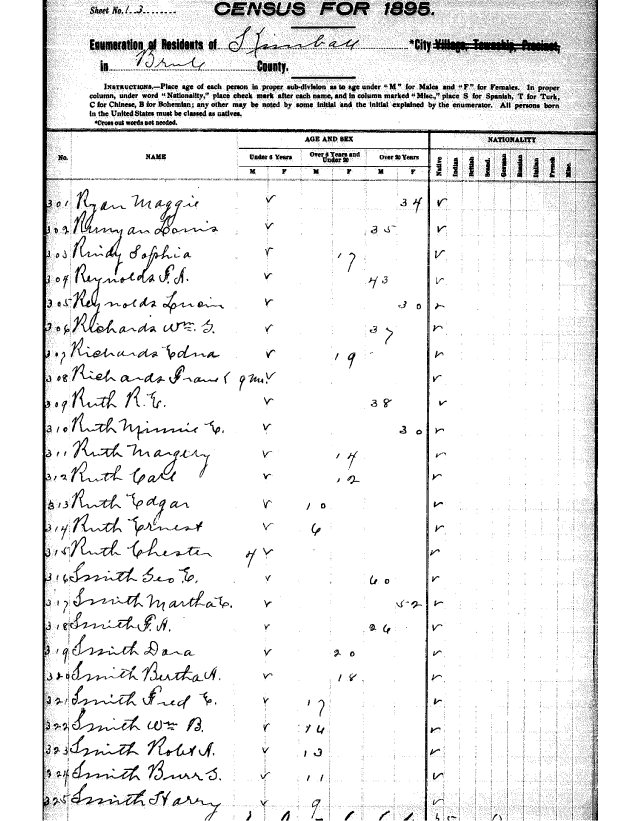 Sheet No. 13
CENSUS FOR 1895.
Enumeration of Residents of Kimball *City Village, Township, Precinct,
in Brule County.
INSTRUCTIONS.—Place age of each person in proper sub-division as to age under "M" for Males and "F" for Females. In proper
column, under word "Nationality," place check mark after each name, and in column marked "Misc.," place S for Spanish, T for Turk,
C for Chinese, B for Bohemian; any other may be noted by some initial and the initial explained by the enumerator. All persons born
in the United States must be classed as natives.
*Cross out words not needed.
AGE AND SEX NATIONALITY
No. NAME Under 6 Years Over 6 Years and Under 20 Over 20 Years Native Indian British Scand. German Russian Italian French Misc.
M F M F M F
301 Ryan Maggie ✓ 34 ✓
302 Runyan ✓ 35 ✓
303 Rindy Sophia ✓ 17 ✓
304 Reynolds F. A. ✓ 43 ✓
305 Reynolds ✓ 30 ✓
306 Richards Wm. S. ✓ 37 ✓
307 Richards Edna ✓ 19 ✓
308 Richards Frank 9 m. ✓ ✓
309 Ruth R. E. ✓ 38 ✓
310 Ruth Minnie E. ✓ 30 ✓
311 Ruth Margery ✓ 14 ✓
312 Ruth Carl ✓ 12 ✓
313 Ruth Edgar ✓ 10 ✓
314 Ruth Ernest ✓ 6 ✓
315 Ruth Chester 4 ✓ ✓
316 Smith Geo E. ✓ 60 ✓
317 Smith Martha E. ✓ 52 ✓
318 Smith F. A. ✓ 26 ✓
319 Smith Dora ✓ 20 ✓
320 Smith Bertha A. ✓ 18 ✓
321 Smith Fred E. ✓ 17 ✓
322 Smith Wm B. ✓ 14 ✓
323 Smith Robt A. ✓ 13 ✓
324 Smith Burr S. ✓ 11 ✓
325 Smith Harry ✓ 9 ✓